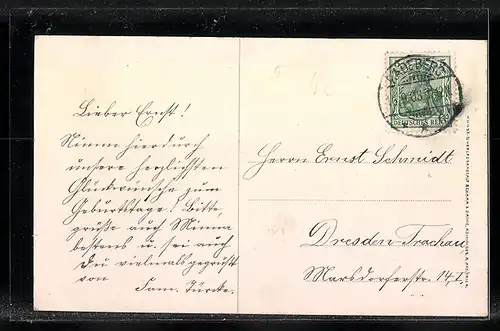 Lieber Ernst!
Nimm hierdurch
unsere herzlichsten
Glückwünsche zum
Geburtstage! Bitte,
grüße auch Minna
bestens u. sei auch
Du vielmals gegrüßt
von
Fam. Türcke.
RADEBERG
DEUTSCHES REICH
Herrn Ernst Schmidt
Dresden-Trachau
Marsdorferstr. 14 I.